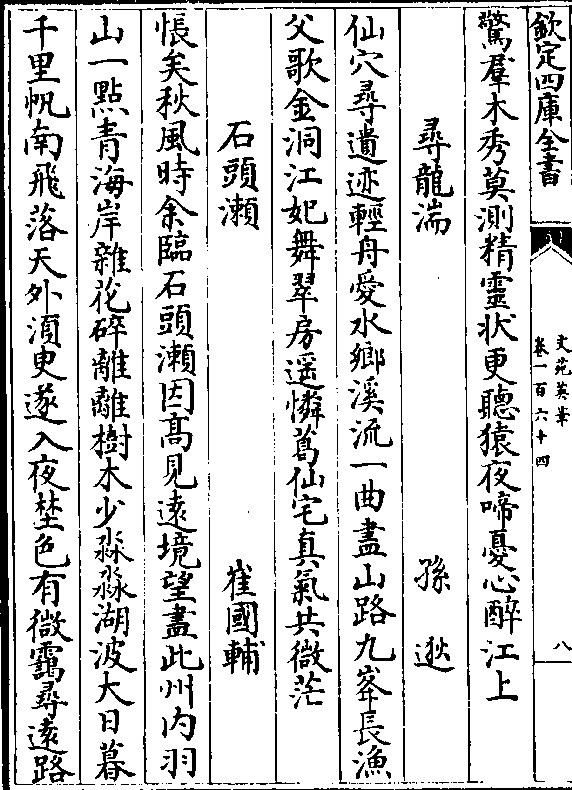 欽定四庫全書
文苑英華
卷一百六十四
八
驚羣木秀莫測精靈状更聽猿夜啼憂心醉江上
尋龍湍 孫逖
仙穴尋遺迹輕舟愛水鄉溪流一曲盡山路九峯長漁
父歌金洞江妃舞翠房遥憐葛仙宅真氣共微茫
石頭瀬 崔國輔
悵矣秋風時余臨石頭瀬因髙見遠境望盡此州内羽
山一點青海岸雜花碎離離樹木少淼淼湖波大日暮
千里帆南飛落天外湏臾遂入夜埜色有微靄尋遠路